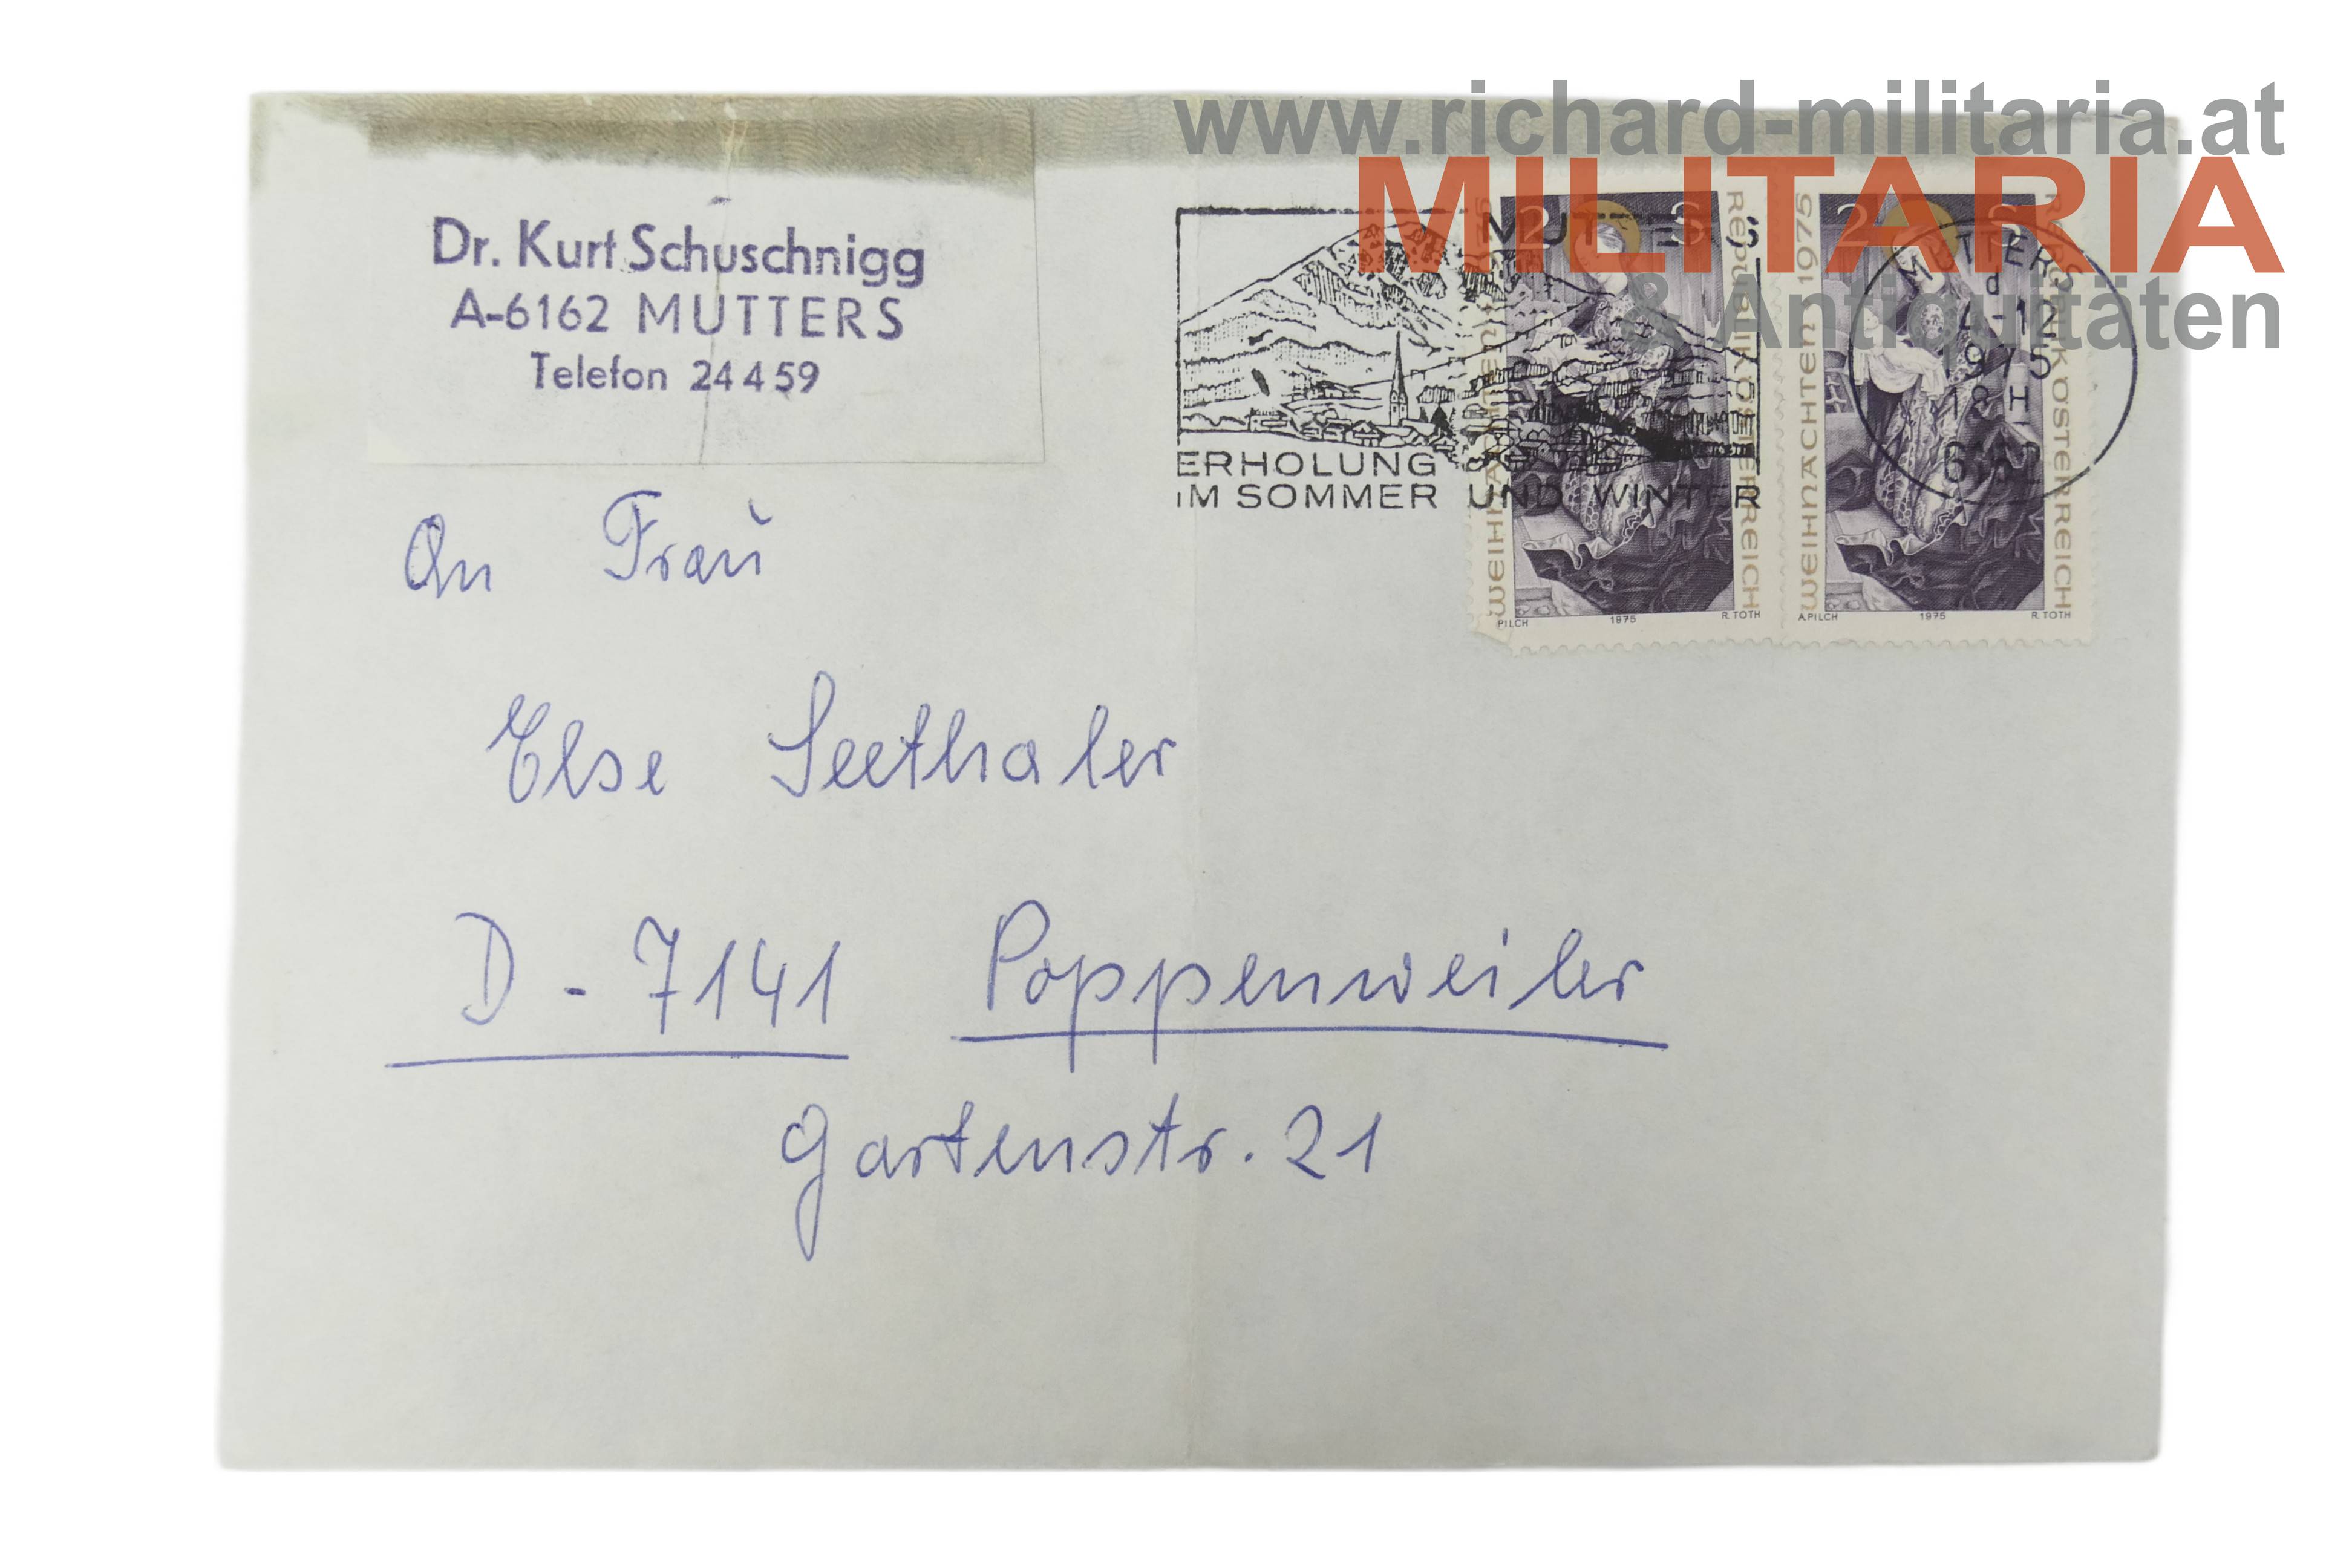 www.richard-militaria.at
MILITARIA
& Antiquitäten
Dr. Kurt Schuschnigg
A-6162 MUTTERS
Telefon 24459
MUTTERS
ERHOLUNG
IM SOMMER UND WINTER
WEIHNACHTEN
REPUBLIK ÖSTERREICH
PILCH 1975 R. TOTH
WEIHNACHTEN 1975
REPUBLIK ÖSTERREICH
A.PILCH 1975 R. TOTH
MUTTERS
1975
An Frau
Else Seethaler
D - 7141 Poppenweiler
Gartenstr. 21